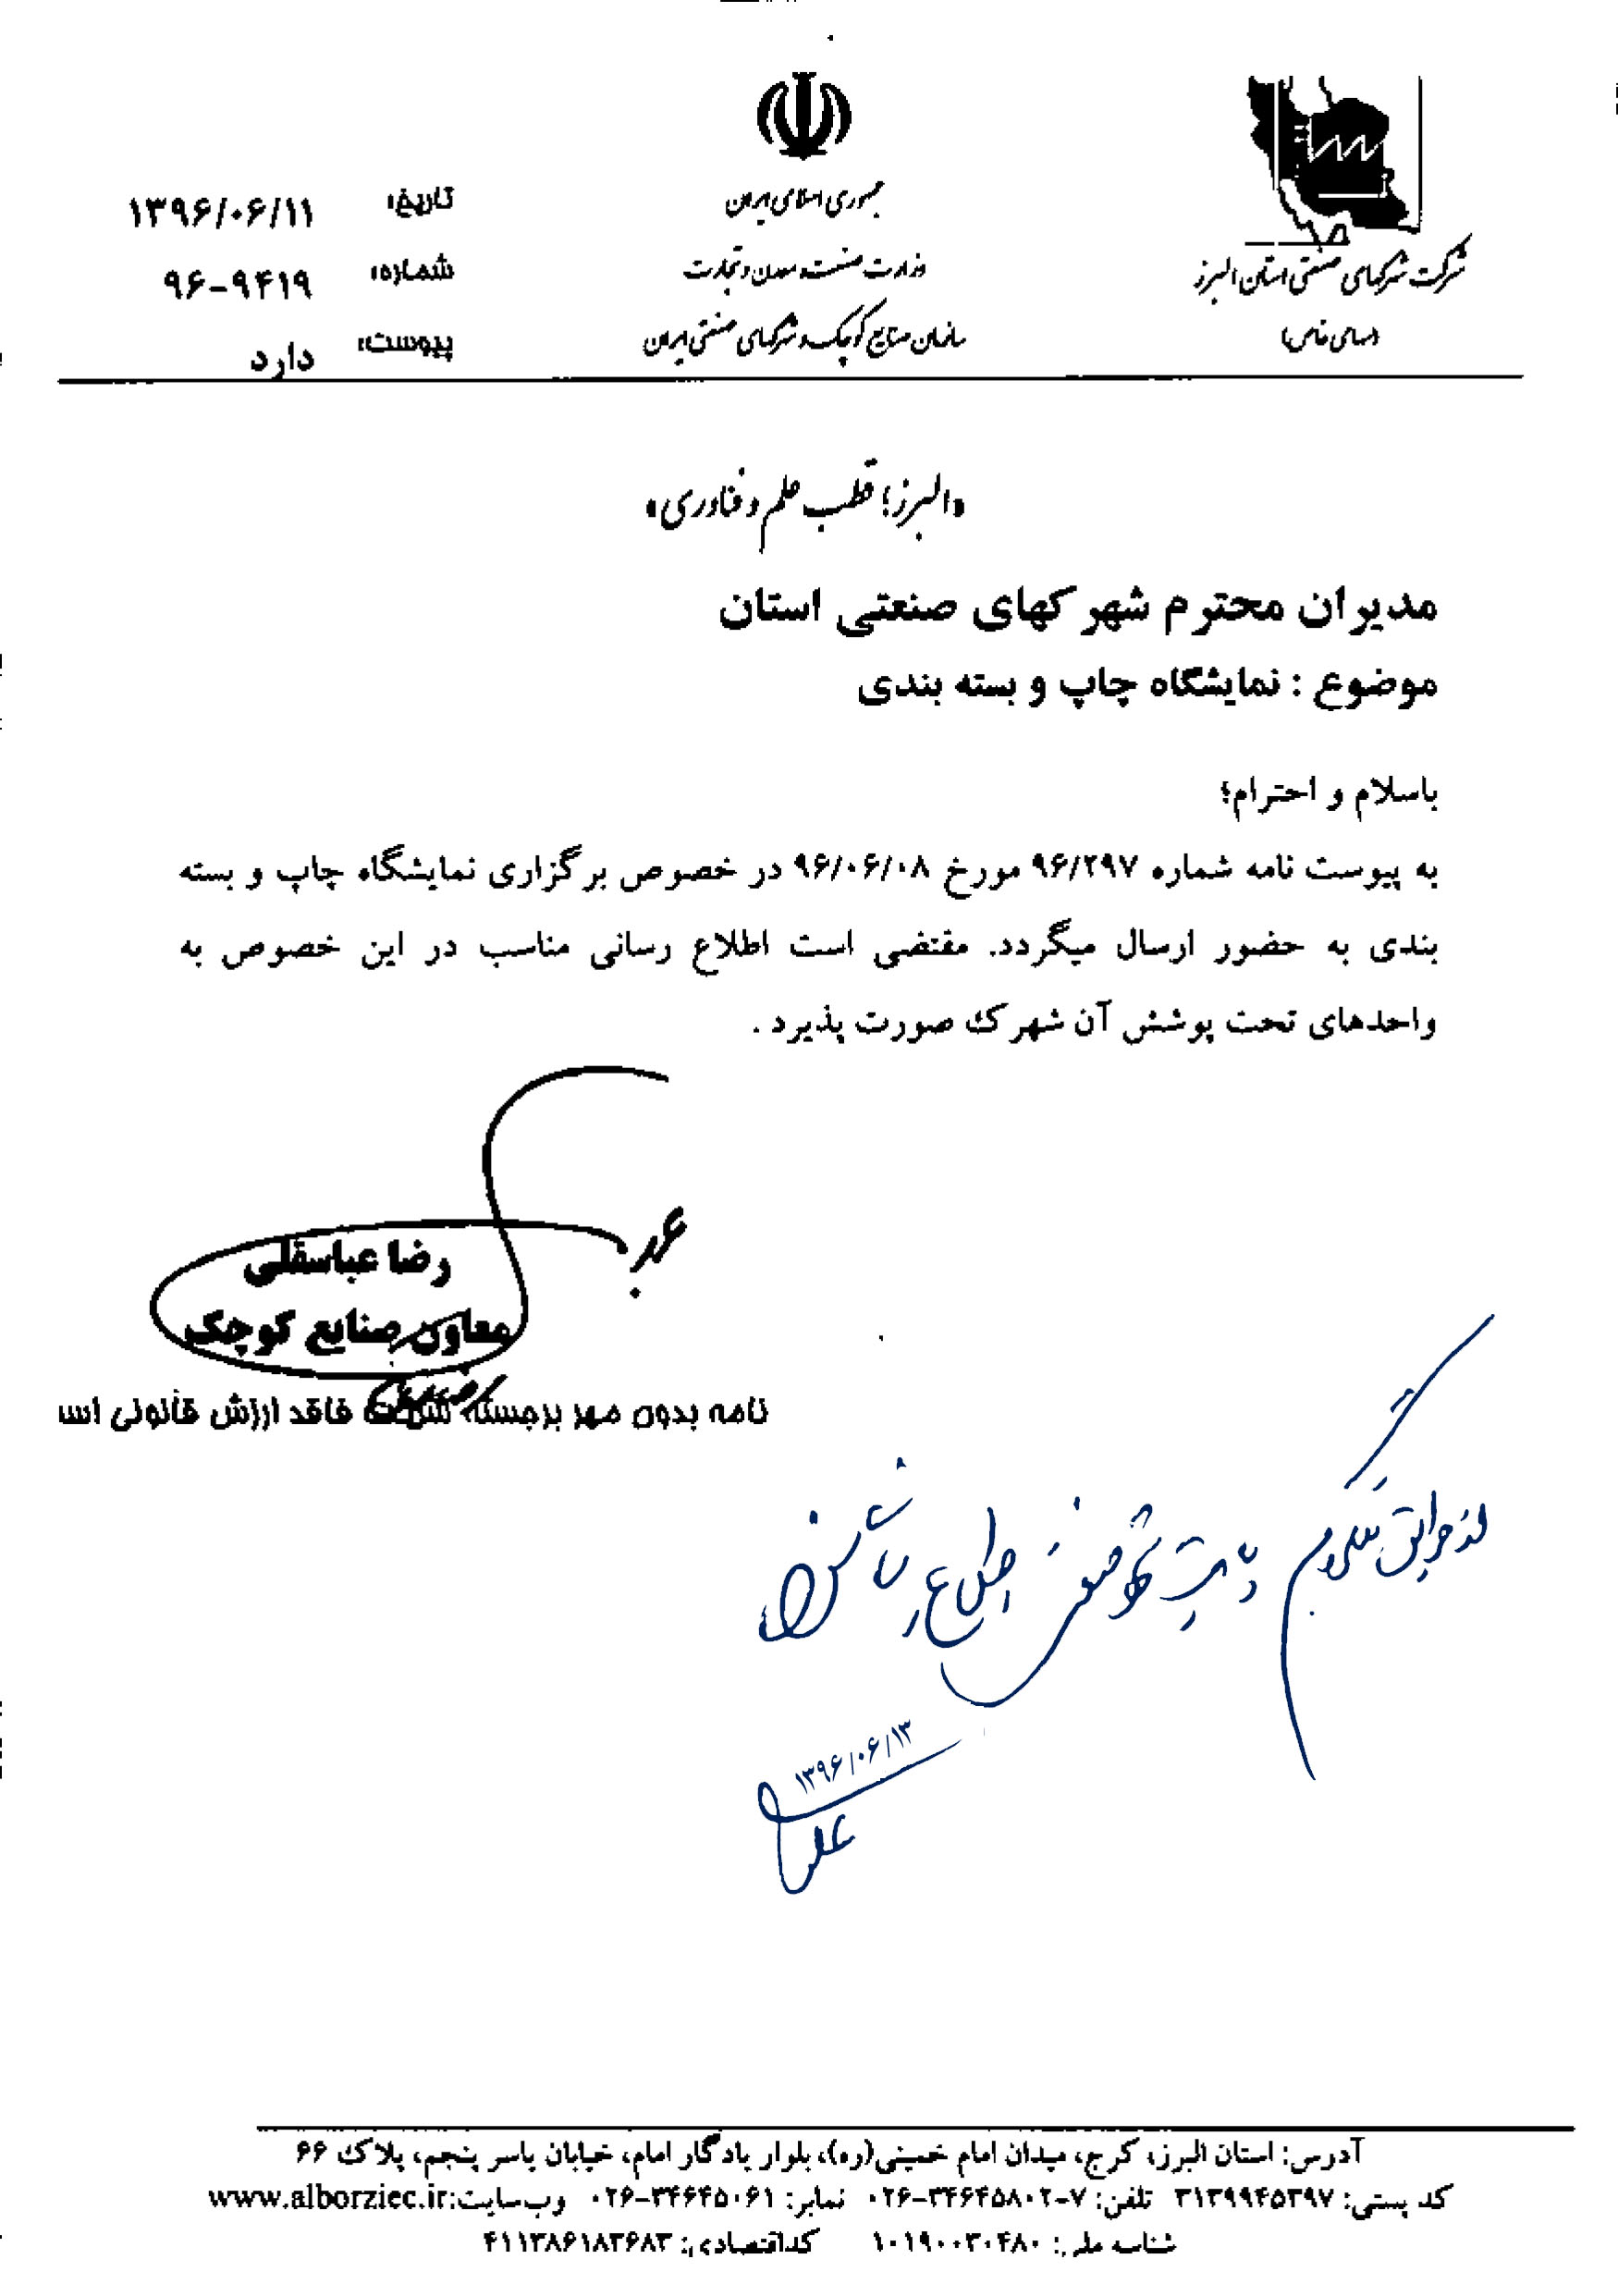 شرکت شهرکهای صنعتی استان البرز
(سهامی خاص)
جمهوری اسلامی ایران
وزارت صنعت، معدن و تجارت
سازمان صنایع کوچک و شهرکهای صنعتی ایران
تاریخ: ۱۳۹۶/۰۶/۱۱
شماره: ۹۶-۹۴۱۹
پیوست: دارد
«البرز؛ قطب علم و فناوری»
مدیران محترم شهرکهای صنعتی استان
موضوع : نمایشگاه چاپ و بسته بندی
باسلام و احترام؛
به پیوست نامه شماره ۹۶/۲۹۷ مورخ ۹۶/۰۶/۰۸ در خصوص برگزاری نمایشگاه چاپ و بسته
بندی به حضور ارسال میگردد. مقتضی است اطلاع رسانی مناسب در این خصوص به
واحدهای تحت پوشش آن شهرک صورت پذیرد .
رضا عباسقلی
معاون صنایع کوچک
نامه بدون مهر برجسته شرکت فاقد ارزش قانونی اس
صنعتی اطلاع رسانی
۱۳۹۶/۰۶/۱۳
آدرس: استان البرز، کرج، میدان امام خمینی(ره)، بلوار یادگار امام، خیابان یاسر پنجم، پلاک ۶۶
کد پستی: ۳۱۳۹۹۴۵۳۹۷ تلفن: ۷-۰۲۶-۳۴۶۴۵۸۰۲ نمابر: ۰۲۶-۳۴۶۴۵۰۶۱ وب سایت:www.alborziec.ir
شناسه ملی: ۱۰۱۹۰۰۳۰۴۸۰ کداقتصادی: ۴۱۱۳۸۶۱۸۳۶۸۳